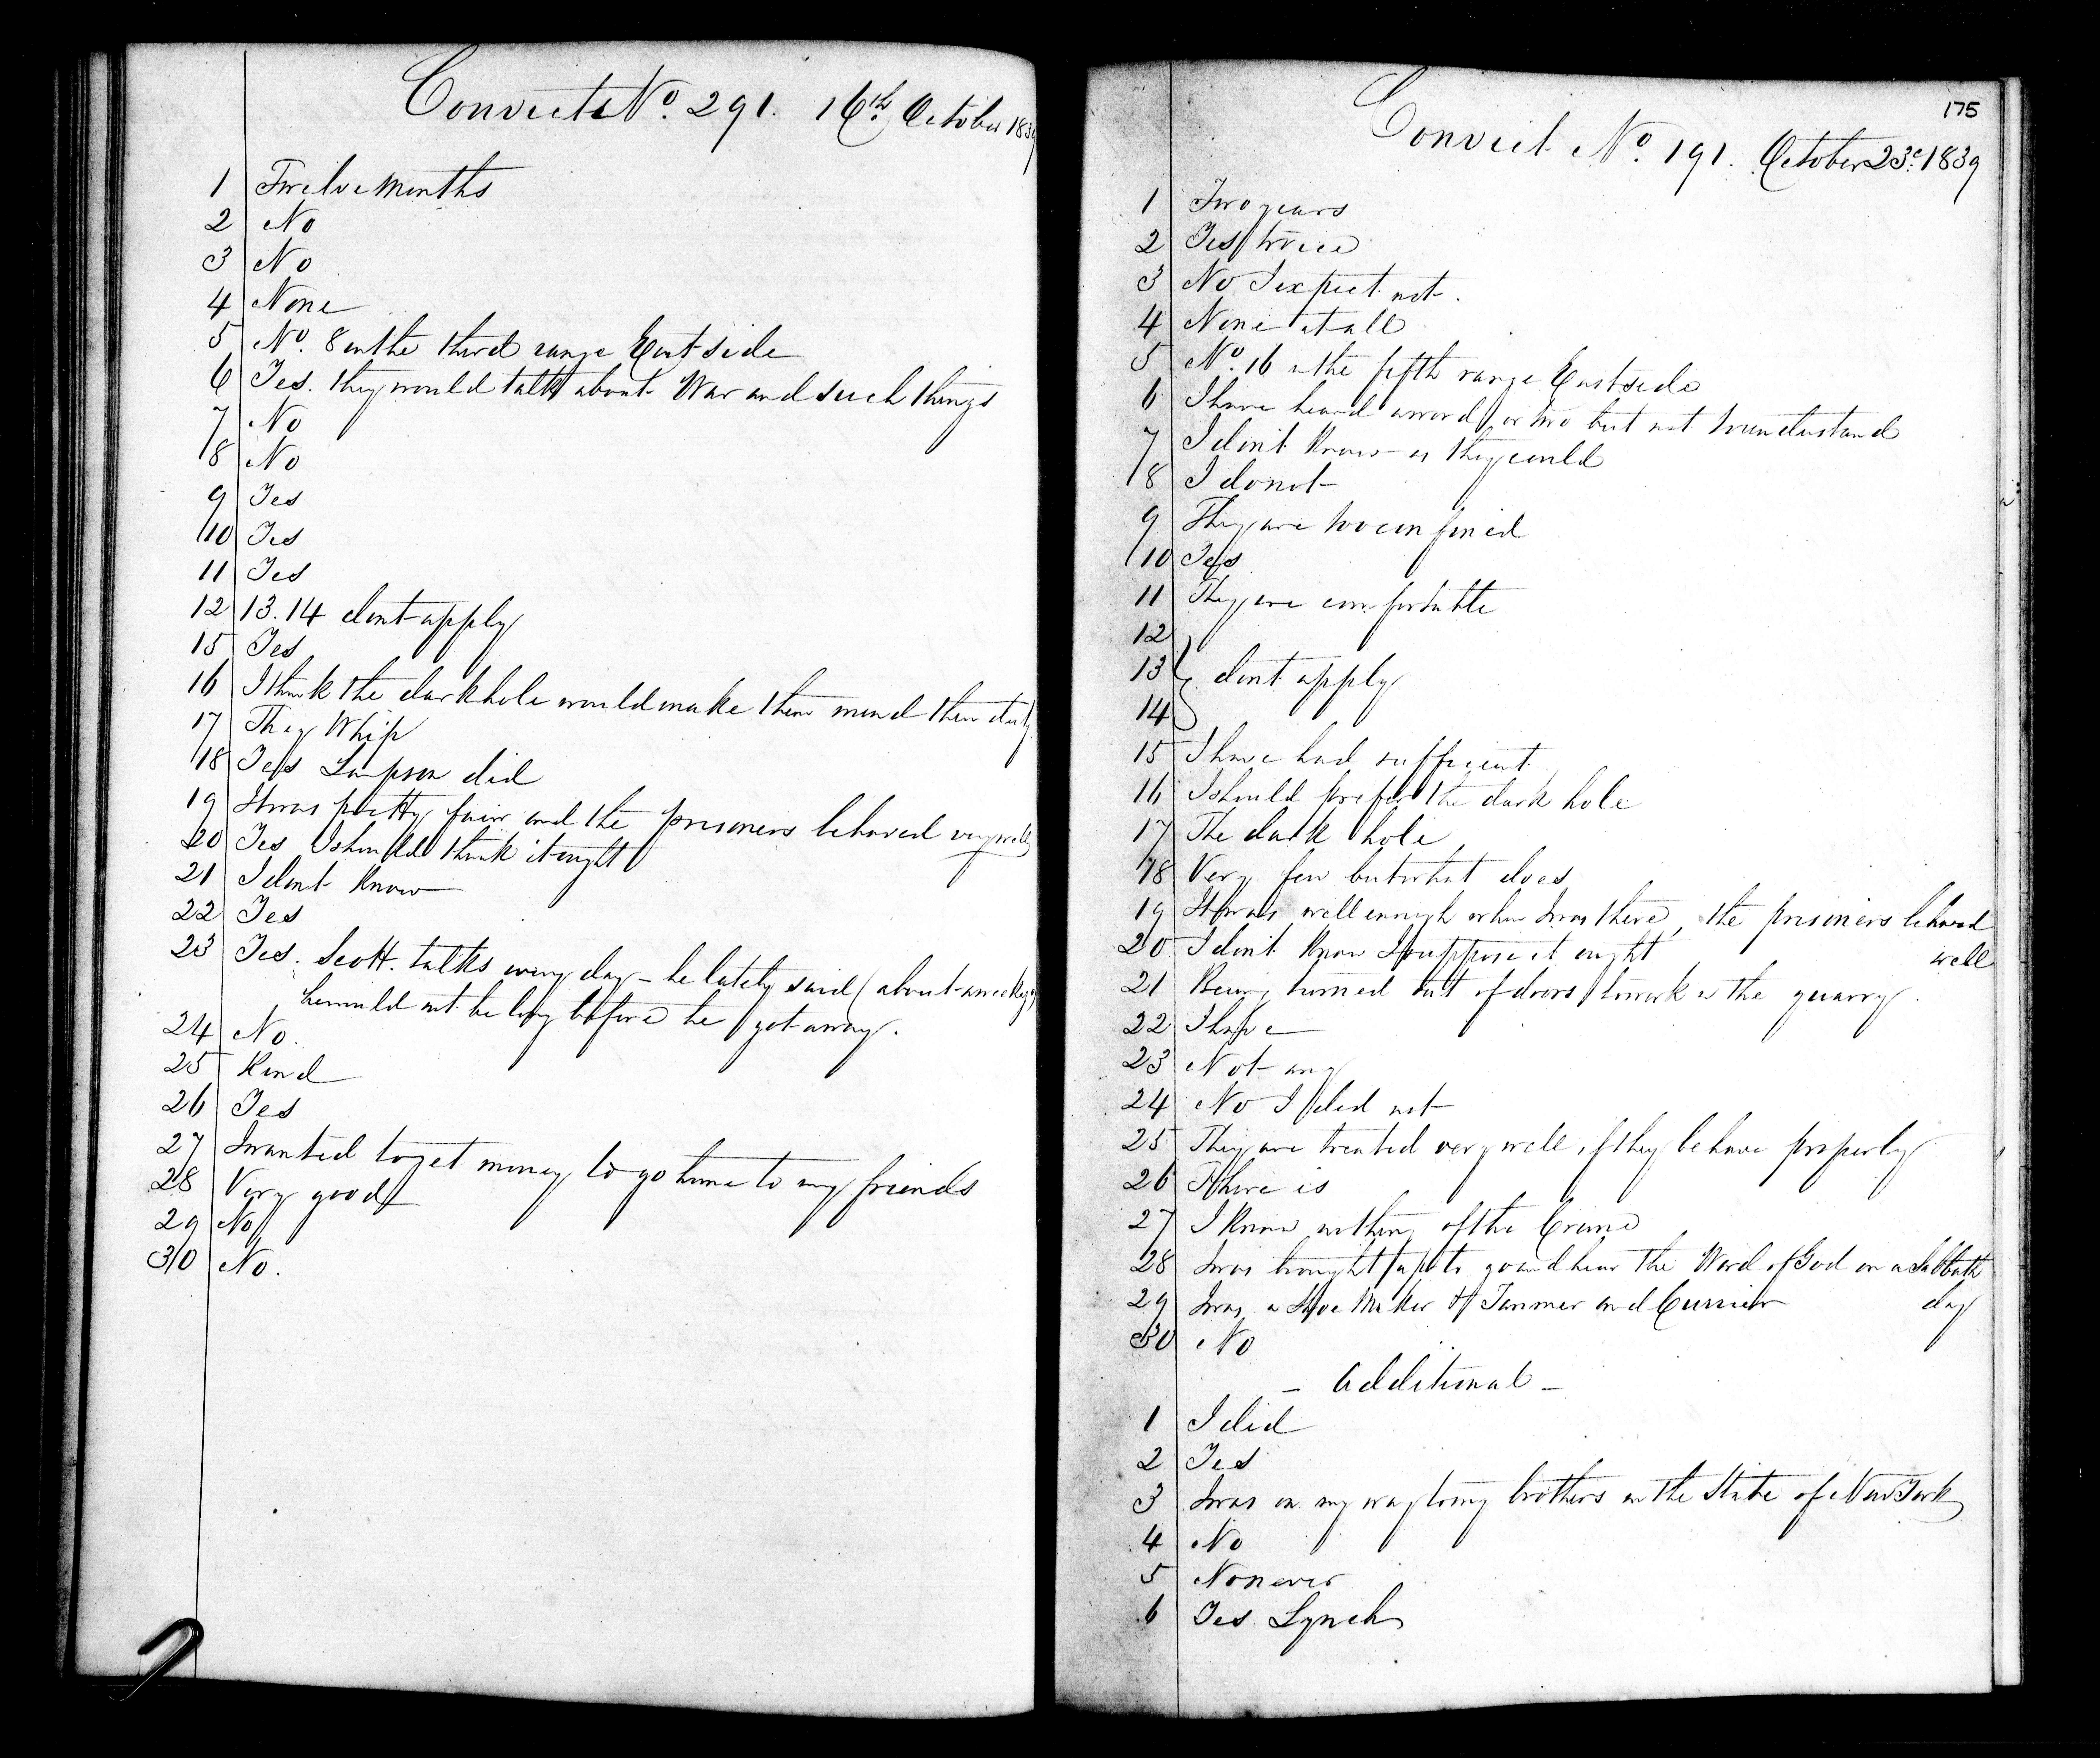 Convicts No. 291. 16th October 1839
1 Twelve Months
2 No
3 No
4 None
5 No. 8 on the third range East side
6 Yes. they would talk about War and such things
7 No
8 No
9 Yes
10 Yes
11 Yes
12 13. 14 dont apply
15 Yes
16 I think the dark hole would make them mend their duty
17 They Whip
18 Yes Sampson did
19 It was pretty fair and the prisoners behaved very well
20 Yes I should think it ought
21 I dont know
22 Yes
23 Yes. Scott. talks every day - he lately said (about a week ago)
he would not be long before he got away.
24 No.
25 Kind
26 Yes
27 I wanted to get money to go home to my friends
28 Very good
29 No
30 No.
175
Convict No. 191. October 23d. 1839
1 Two years
2 Yes twice
3 No I expect not.
4 None at all
5 No. 16 in the fifth range East side
6 I have heard a word or two but not to understand
7 I don't know as they could
8 I do not
9 They are too confined
10 Yes
11 They are comfortable
12
13 } dont apply
14
15 I have had sufficient
16 I should prefer the dark hole
17 The dark hole
18 Very few but what does
19 It was well enough when I was there, the prisoners behaved
well
20 I don't know I suppose it ought
21 Being turned out of doors to work in the quarry.
22 I hope
23 Not any
24 No I did not
25 They are treated very well if they behave properly
26 There is
27 I know nothing of the Crime
28 I was brought up to go and hear the Word of God on a Sabbath
day
29 I was a Shoe Maker & Tanner and Currier
30 No
- Additional -
1 I did
2 Yes
3 I was on my way to my brothers in the State of New York
4 No
5 No never
6 Yes Lynch